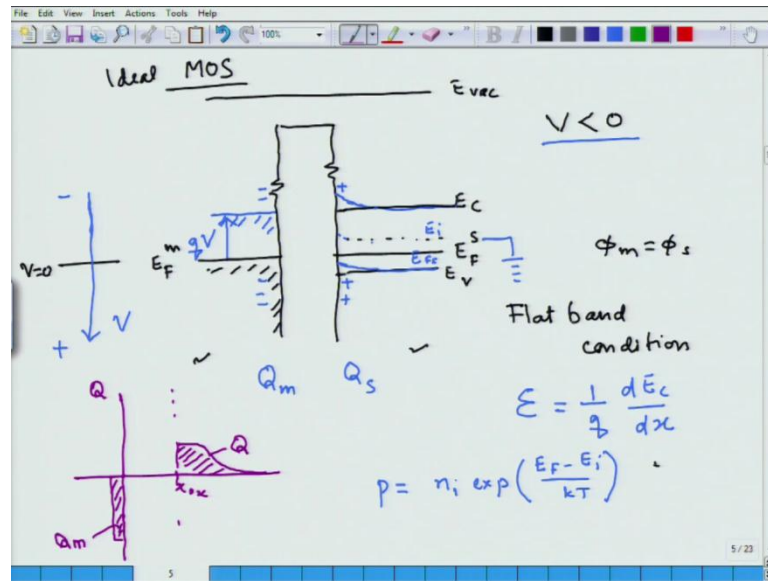 File Edit View Insert Actions Tools Help
100%
B I
Ideal MOS
Evac
V < 0
-
+
Ec
Ei
V=0
E_F^m
qV
E_F^S
E_Fs
Ev
ϕm = ϕs
+ V
Flat band
condition
Qm Qs
Q
ℰ = 1/q dEc/dx
Q
xox
p = ni exp((EF - Ei)/kT)
Qm
5/23
5